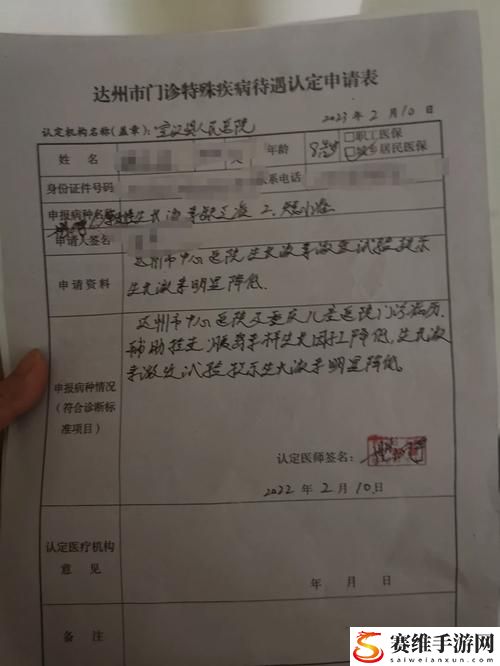 达州市门诊特殊疾病待遇认定申请表
认定机构名称(盖章): 宣汉县人民医院 2023 年 2 月 10 日
姓 名 年龄 8岁 □职工医保
□城乡居民医保
身份证件号码 联系电话
申报病种名称 生长激素缺乏症 2.
申请人签名
申请资料 达州市中心医院生长激素激发试验提示
生长激素明显降低.
达州市中心医院及重庆儿童医院门诊病历.
辅助检查:胰岛素样生长因子降低.生长激
素激发试验提示生长激素明显降低.
申报病种情况
(符合诊断标
准项目)
认定医师签名:
2022 年 2 月 10 日
认定医疗机构
意 见
年 月 日
备 注
赛维手游网
www.saiweilanxun.com